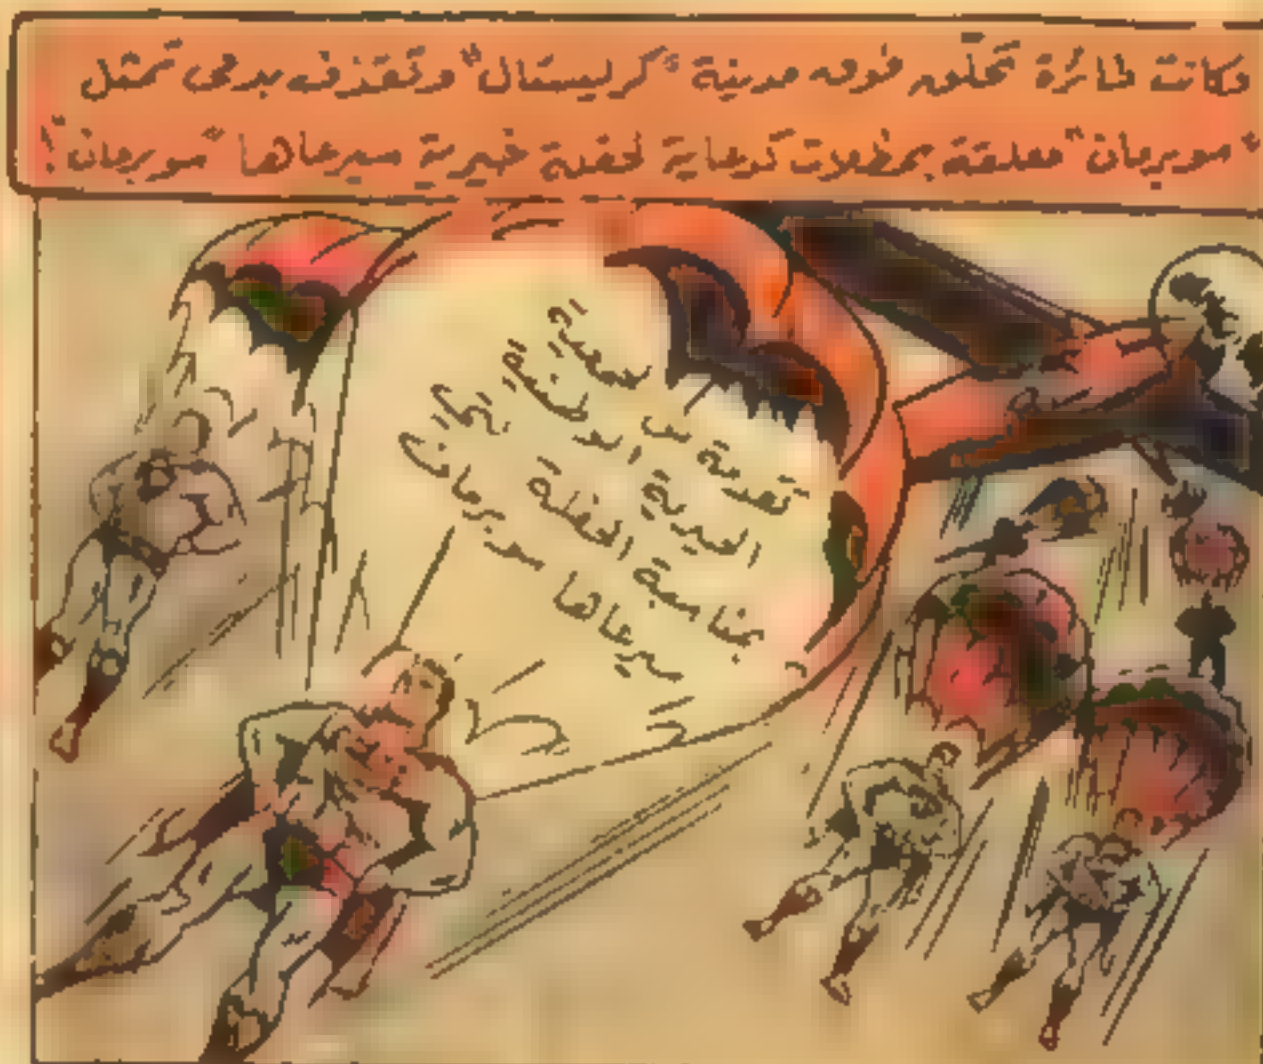 وكانت طائرة تحلّق فوق مدينة "كريستال" وتقذف بدمى تمثل
"سوبرمان" معلقة بمظلات كدعاية لحفلة خيرية سيرعاها "سوبرمان"!
تقدمة من
الخيرية
بمناسبة الحفلة
سيرعاها سوبرمان